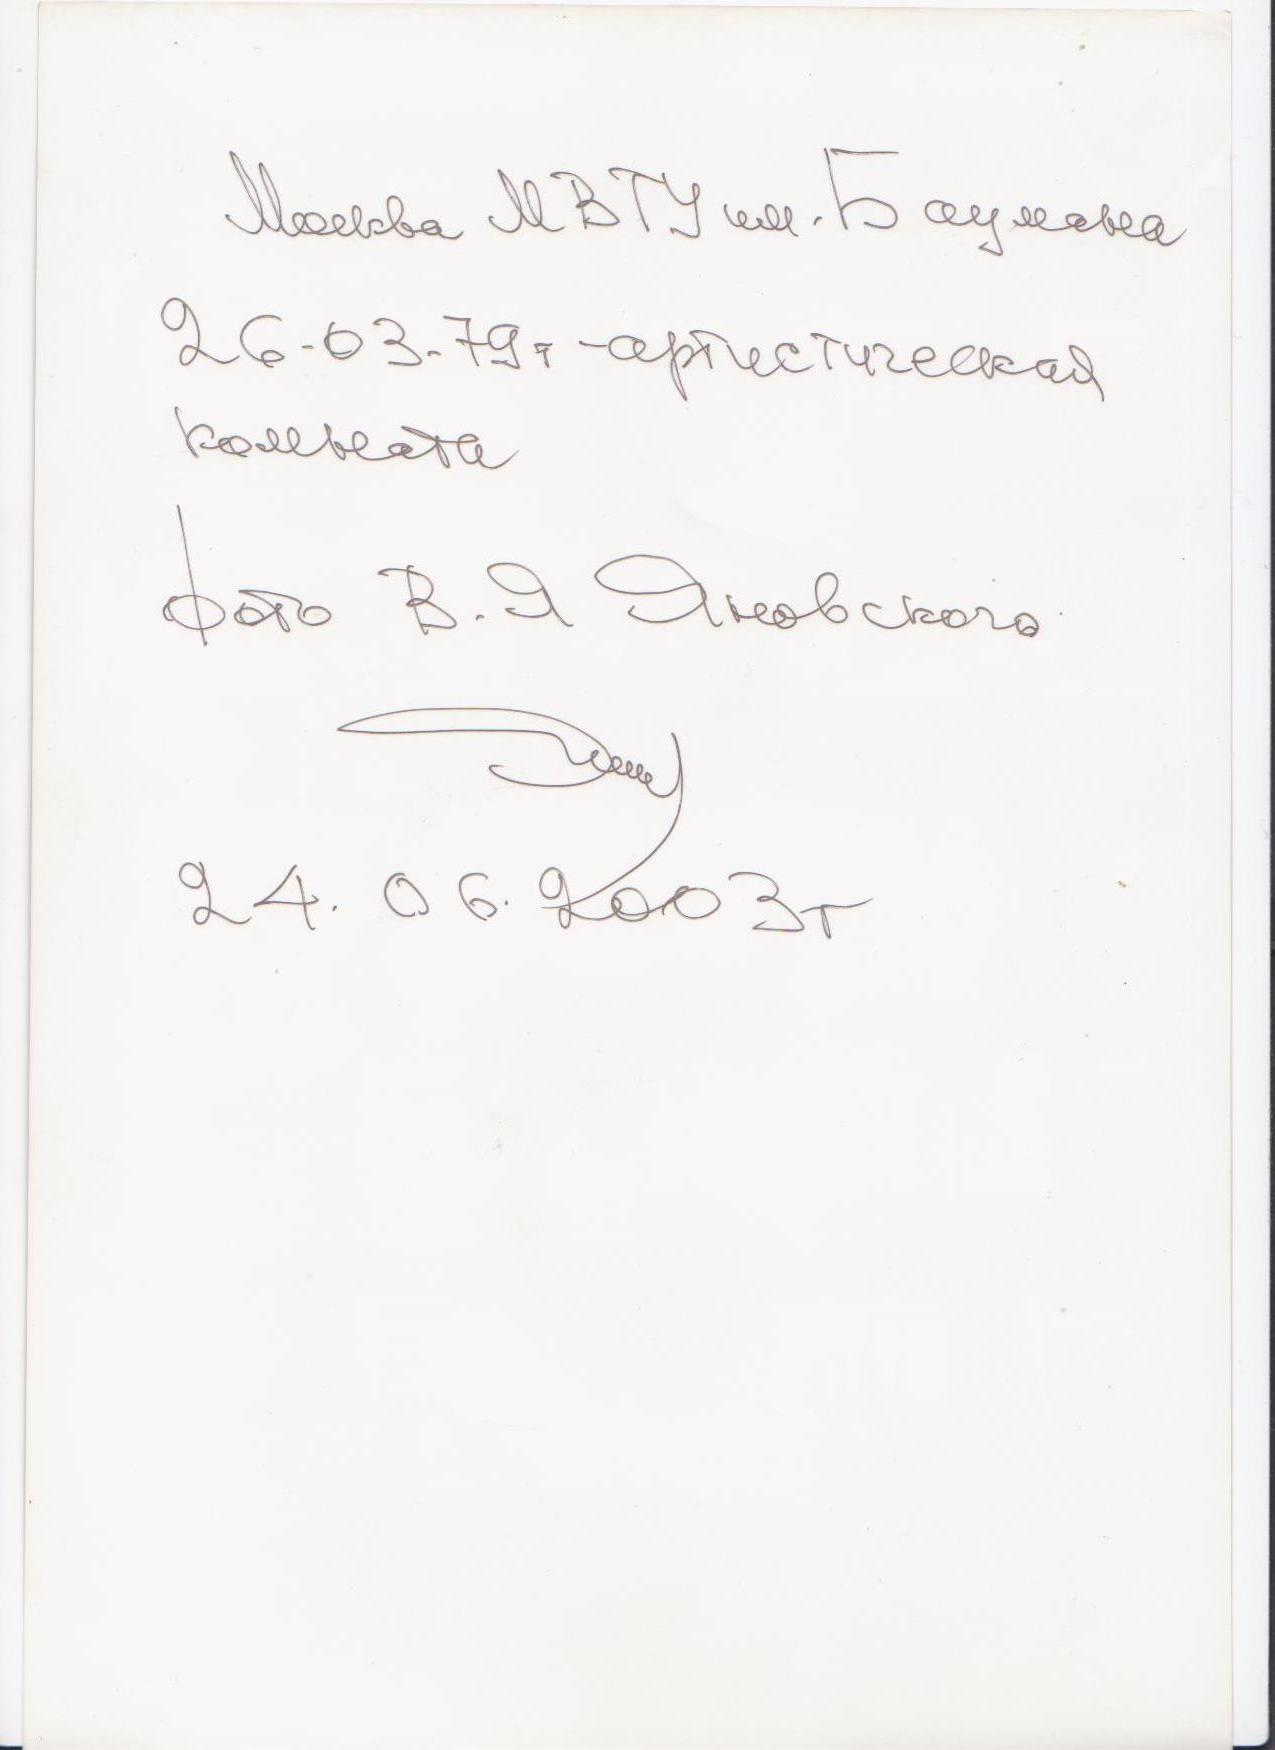 Москва МВТУ им. Баумана
26-03-79г -артистическая
комната
Фото В.Я Яновского
24.06.2003г